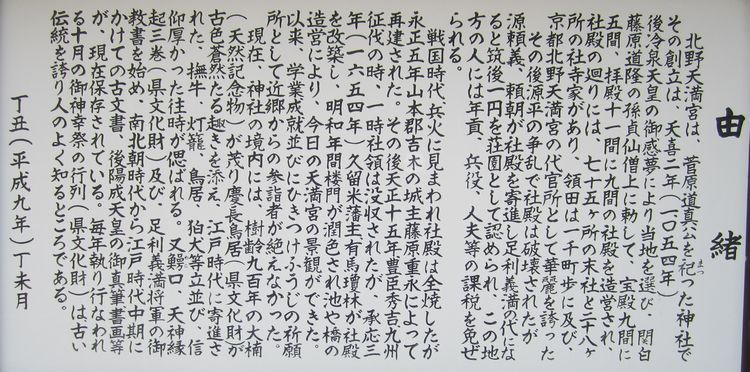 由緒
北野天満宮は、菅原道真公を祀った神社で
その創立は、天喜二年（一〇五四年）
後冷泉天皇の御感夢により当地を選び、関白
藤原道隆の孫貞仙僧上に勅して、宝殿九間に
五間、拝殿十一間に九間の社殿を造営され、
社殿の廻りには、七十五ヶ所の末社と二十八ヶ
まつ
所の社寺家があり、領田は一千町歩に及び、
京都北野天満宮の代官所として華麗を誇った
その後源平の争乱で社殿は破壊されたが
源頼義、頼朝が社殿を寄進し足利義満の代にな
ると筑後一円を荘園として認められ、この地
方の人には年貢、兵役、人夫等の課税を免ぜ
られる。
戦国時代、兵火に見まわれ社殿は全焼したが
永正五年山本郡吉木の城主藤原重永によって
再建された。その後天正十五年豊臣秀吉九州
征伐の時、一時社領は没収されたが、承応三
年（一六五四年）久留米藩主有馬瓊林が社殿
を改築し、明和年間楼門が潤色され池や橋の
造営により、今日の天満宮の景観ができた。
以来、学業成就並びにひきつけふうじの祈願
所として近郷からの参詣者が絶えなかった。
現在、神社の境内には、樹齢九百年の大楠
（天然記念物）が茂り慶長鳥居（県文化財）が
古色蒼然たる趣きを添え、江戸時代に寄進さ
れた、撫牛、灯籠、鳥居、狛犬等立並び、信
仰厚かった往時が偲ばれる。又鰐口、天神縁
起三巻（県文化財）及び、足利義満将軍の御
教書を始め、南北朝時代から江戸時代中期に
かけての古文書、後陽成天皇の御真筆書画等
が、現在保存されている。毎年執り行なわれ
る十月の御神幸祭の行列（県文化財）は古い
伝統を誇り人のよく知るところである。
丁丑（平成九年）丁未月